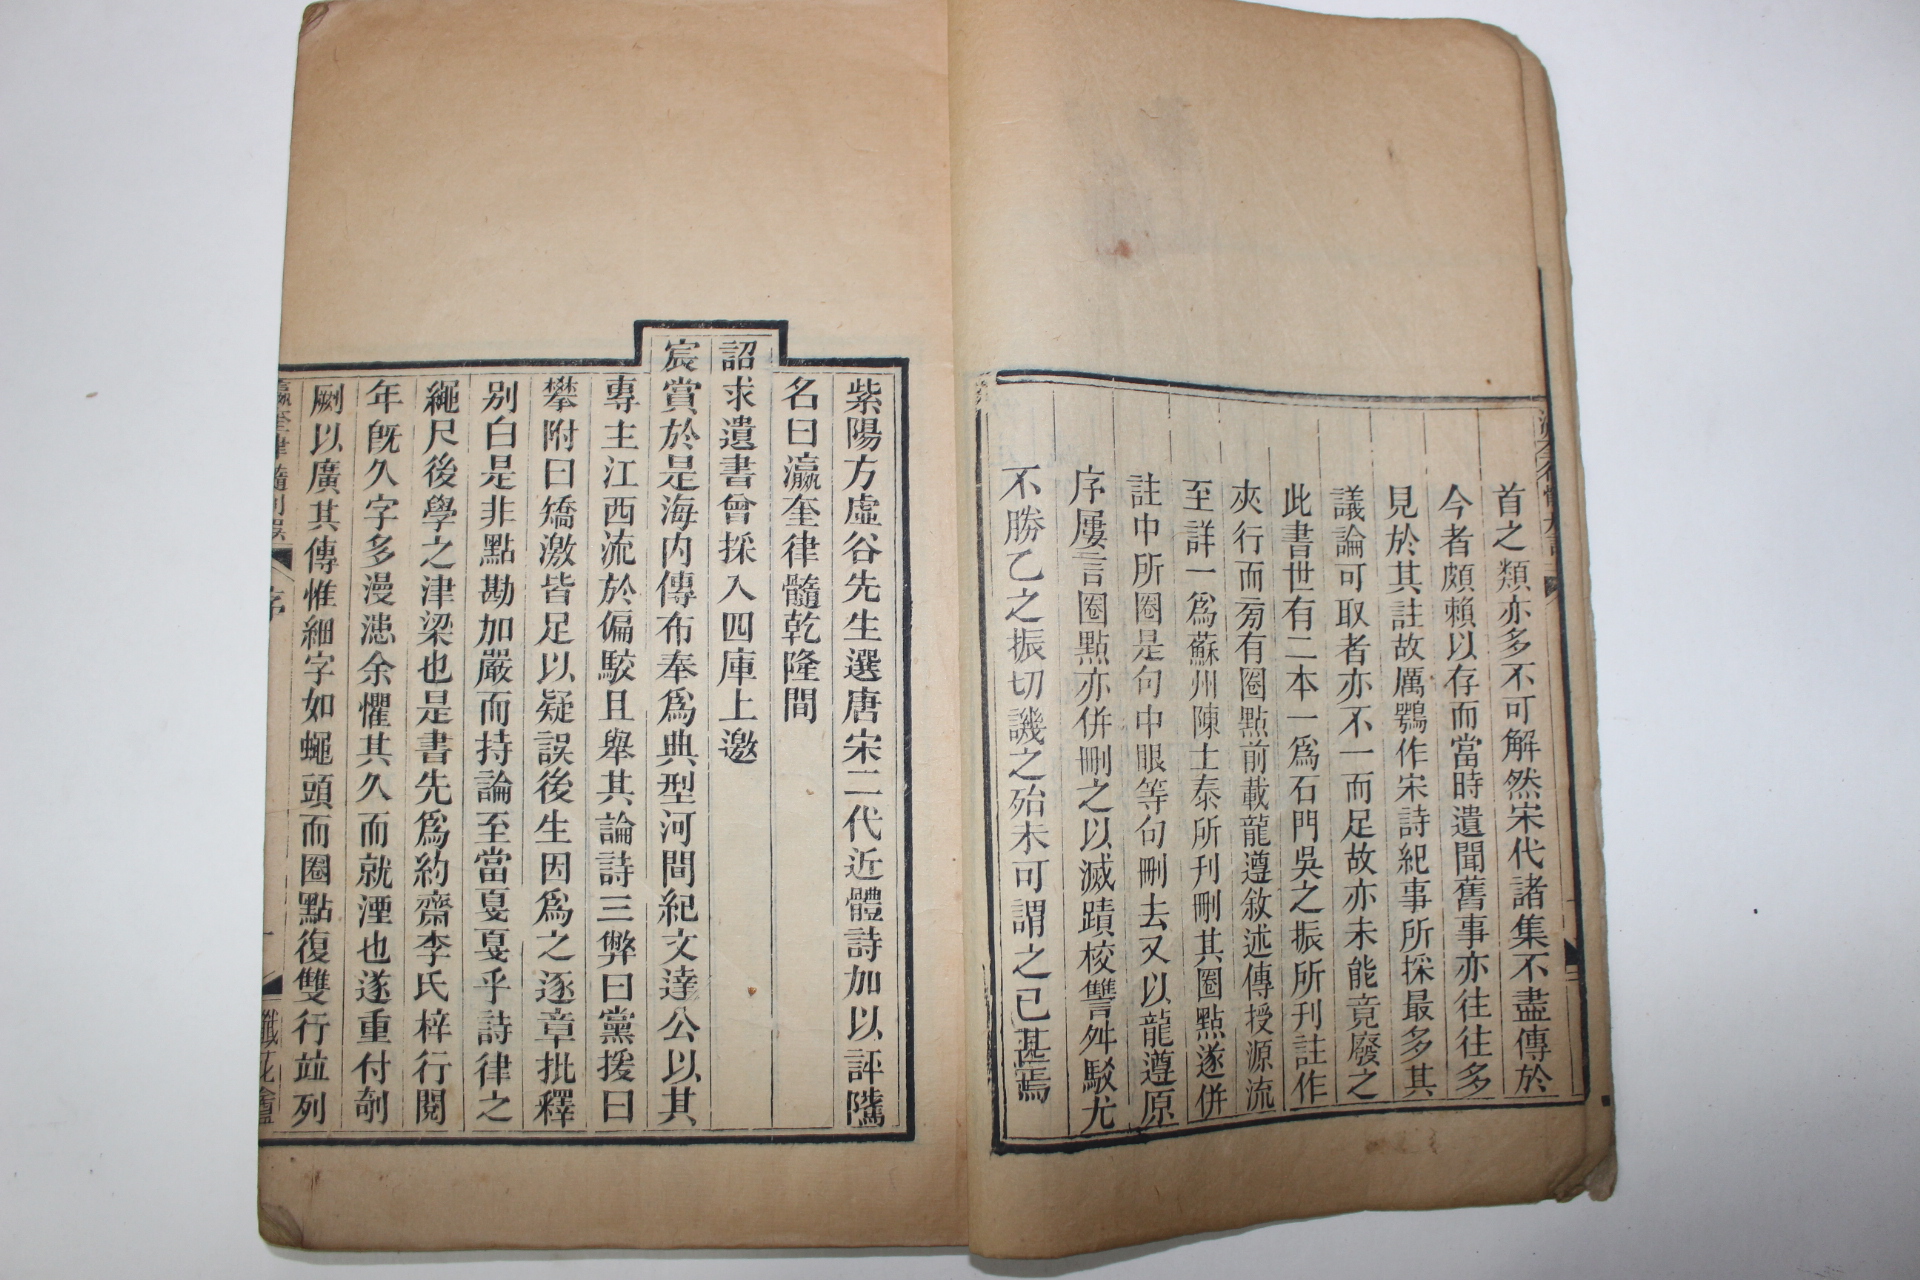 首之類亦多不可解然宋代諸集不盡傳於
今者頗賴以存而當時遺聞舊事亦往往多
見於其註故厲鶚作宋詩紀事所採最多其
議論可取者亦不一而足故亦未能竟廢之
此書世有二本一爲石門吳之振所刊註作
夾行而旁有圈點前載龍遵敘述傳授源流
至詳一爲蘇州陳士泰所刊刪其圈點遂併
註中所圈是句中眼等句刪去又以龍遵原
序屢言圈點亦併刪之以滅蹟校讐舛駁尤
不勝乙之振切譏之殆未可謂之已甚焉
紫陽方虛谷先生選唐宋二代近體詩加以評隲
名曰瀛奎律髓乾隆間
詔求遺書曾採入四庫上邀
宸賞於是海内傳布奉爲典型河間紀文達公以其
專主江西流於偏駮且舉其論詩三弊曰黨援曰
攀附曰矯激皆足以疑誤後生因爲之逐章批釋
别白是非點勘加嚴而持論至當戛戛乎詩律之
繩尺後學之津梁也是書先爲約齋李氏梓行閱
年旣久字多漫漶余懼其久而就湮也遂重付剞
劂以廣其傳惟細字如蠅頭而圈點復雙行竝列
瀛奎律髓刊誤
序
一